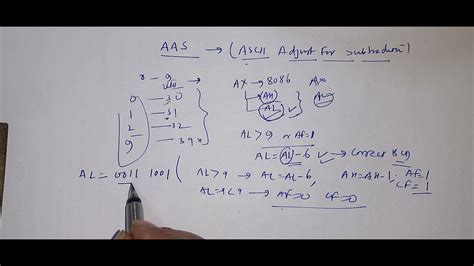 AAS → (ASCII Adjust For Subtraction)
0 – 9 →
0 — 30
1 — 31
2 — 32
9 — 39
AX → 8086
AH
AL ✓
AL > 9 or AF=1
AL = AL – 6 ✓ → Correct BCD
AL = 0011 1001 ( AL > 9 → AL = AL – 6, AH = AH – 1, AF = 1
CF = 1
AL = 9 < 9 → AF = 0 CF = 0